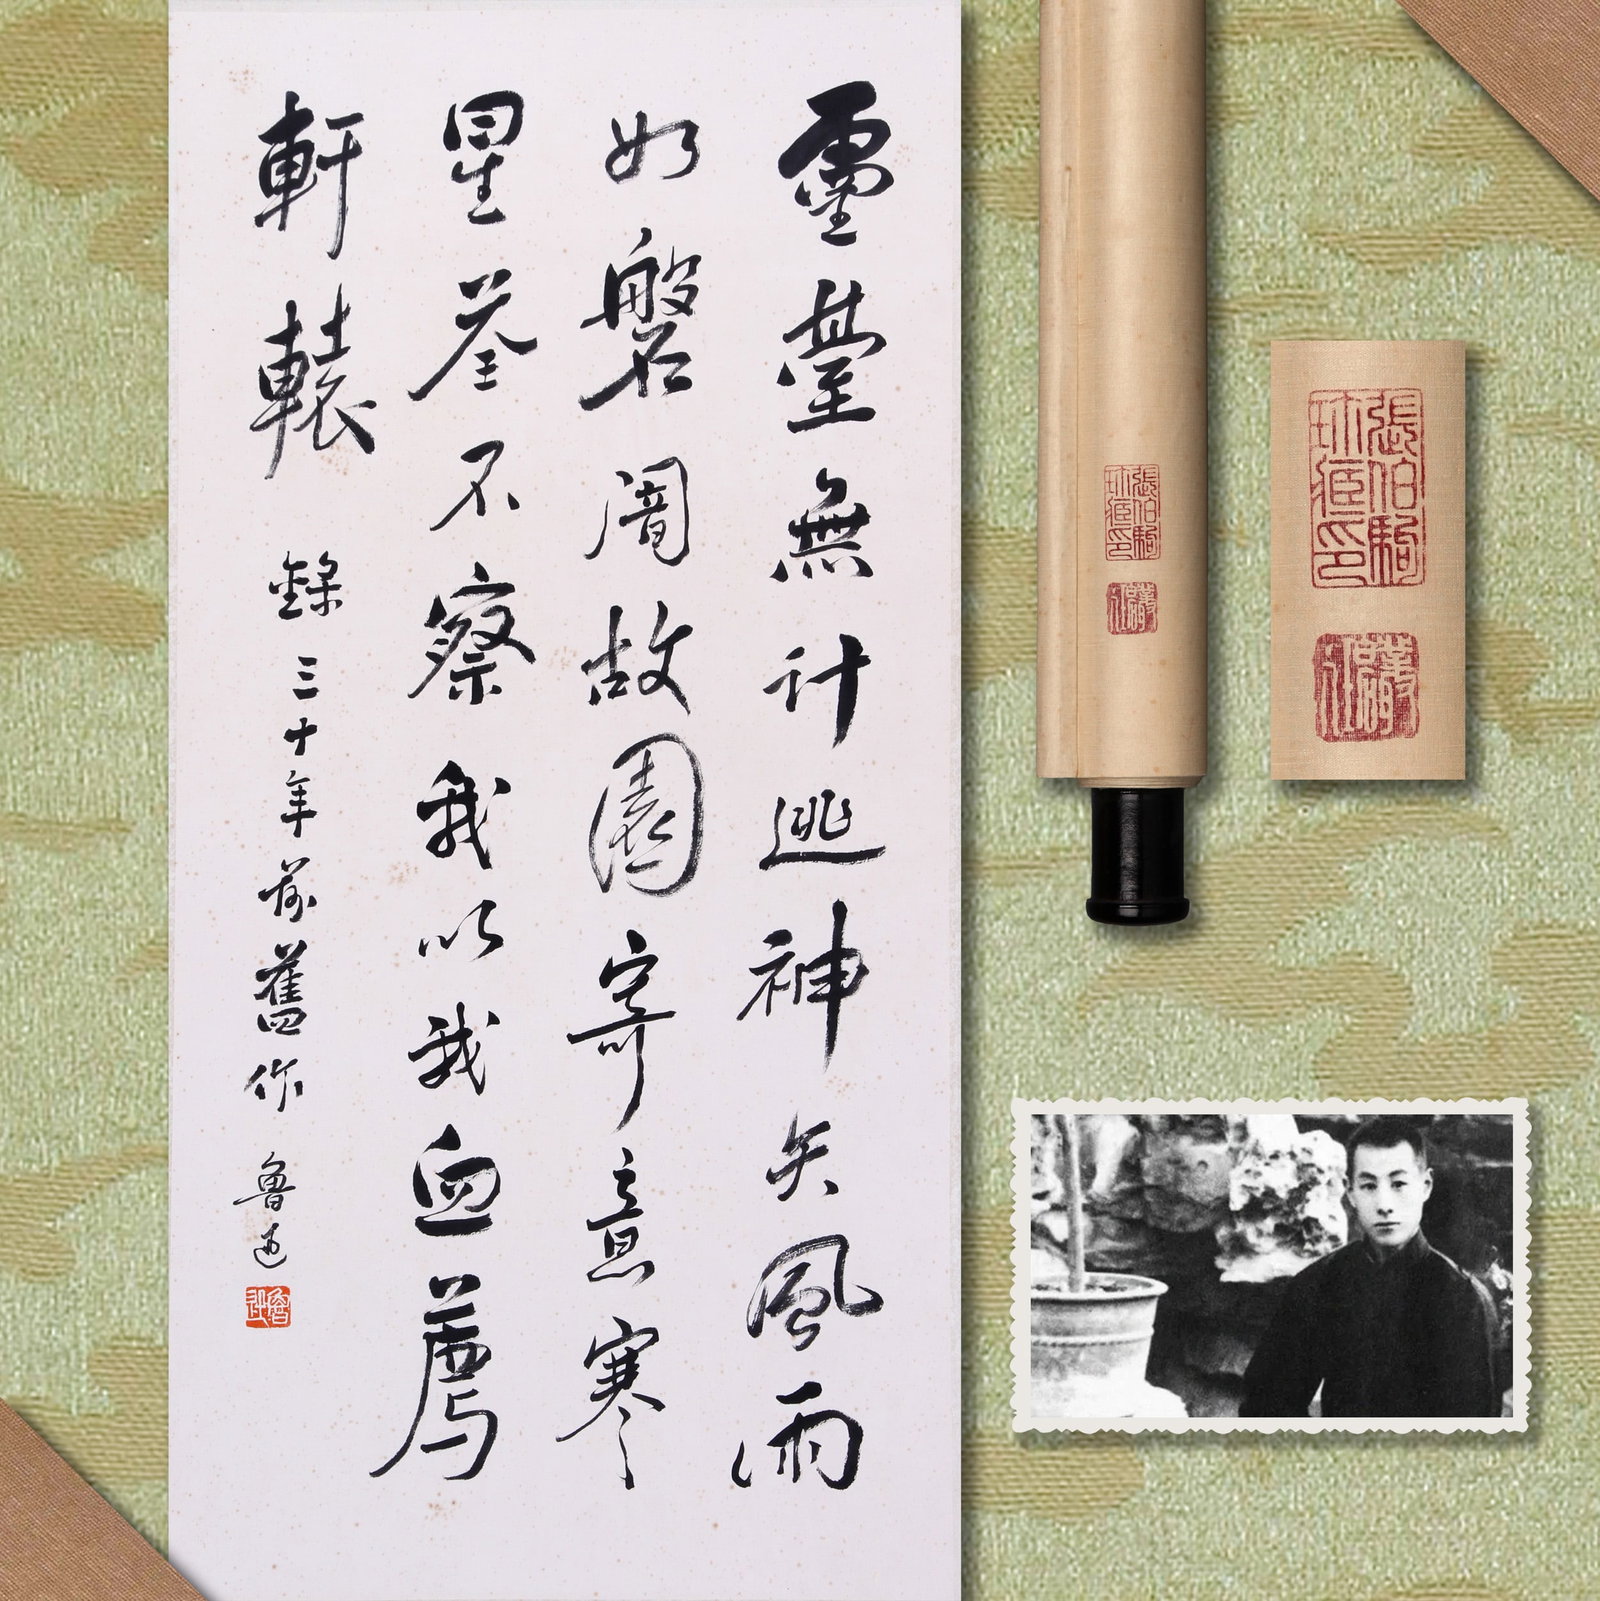 靈臺無計逃神矢風雨
如磐闇故園寄意寒
星荃不察我以我血薦
軒轅 錄三十年前舊作 魯迅
魯迅
張伯駒
珍藏印
張伯駒
珍藏印